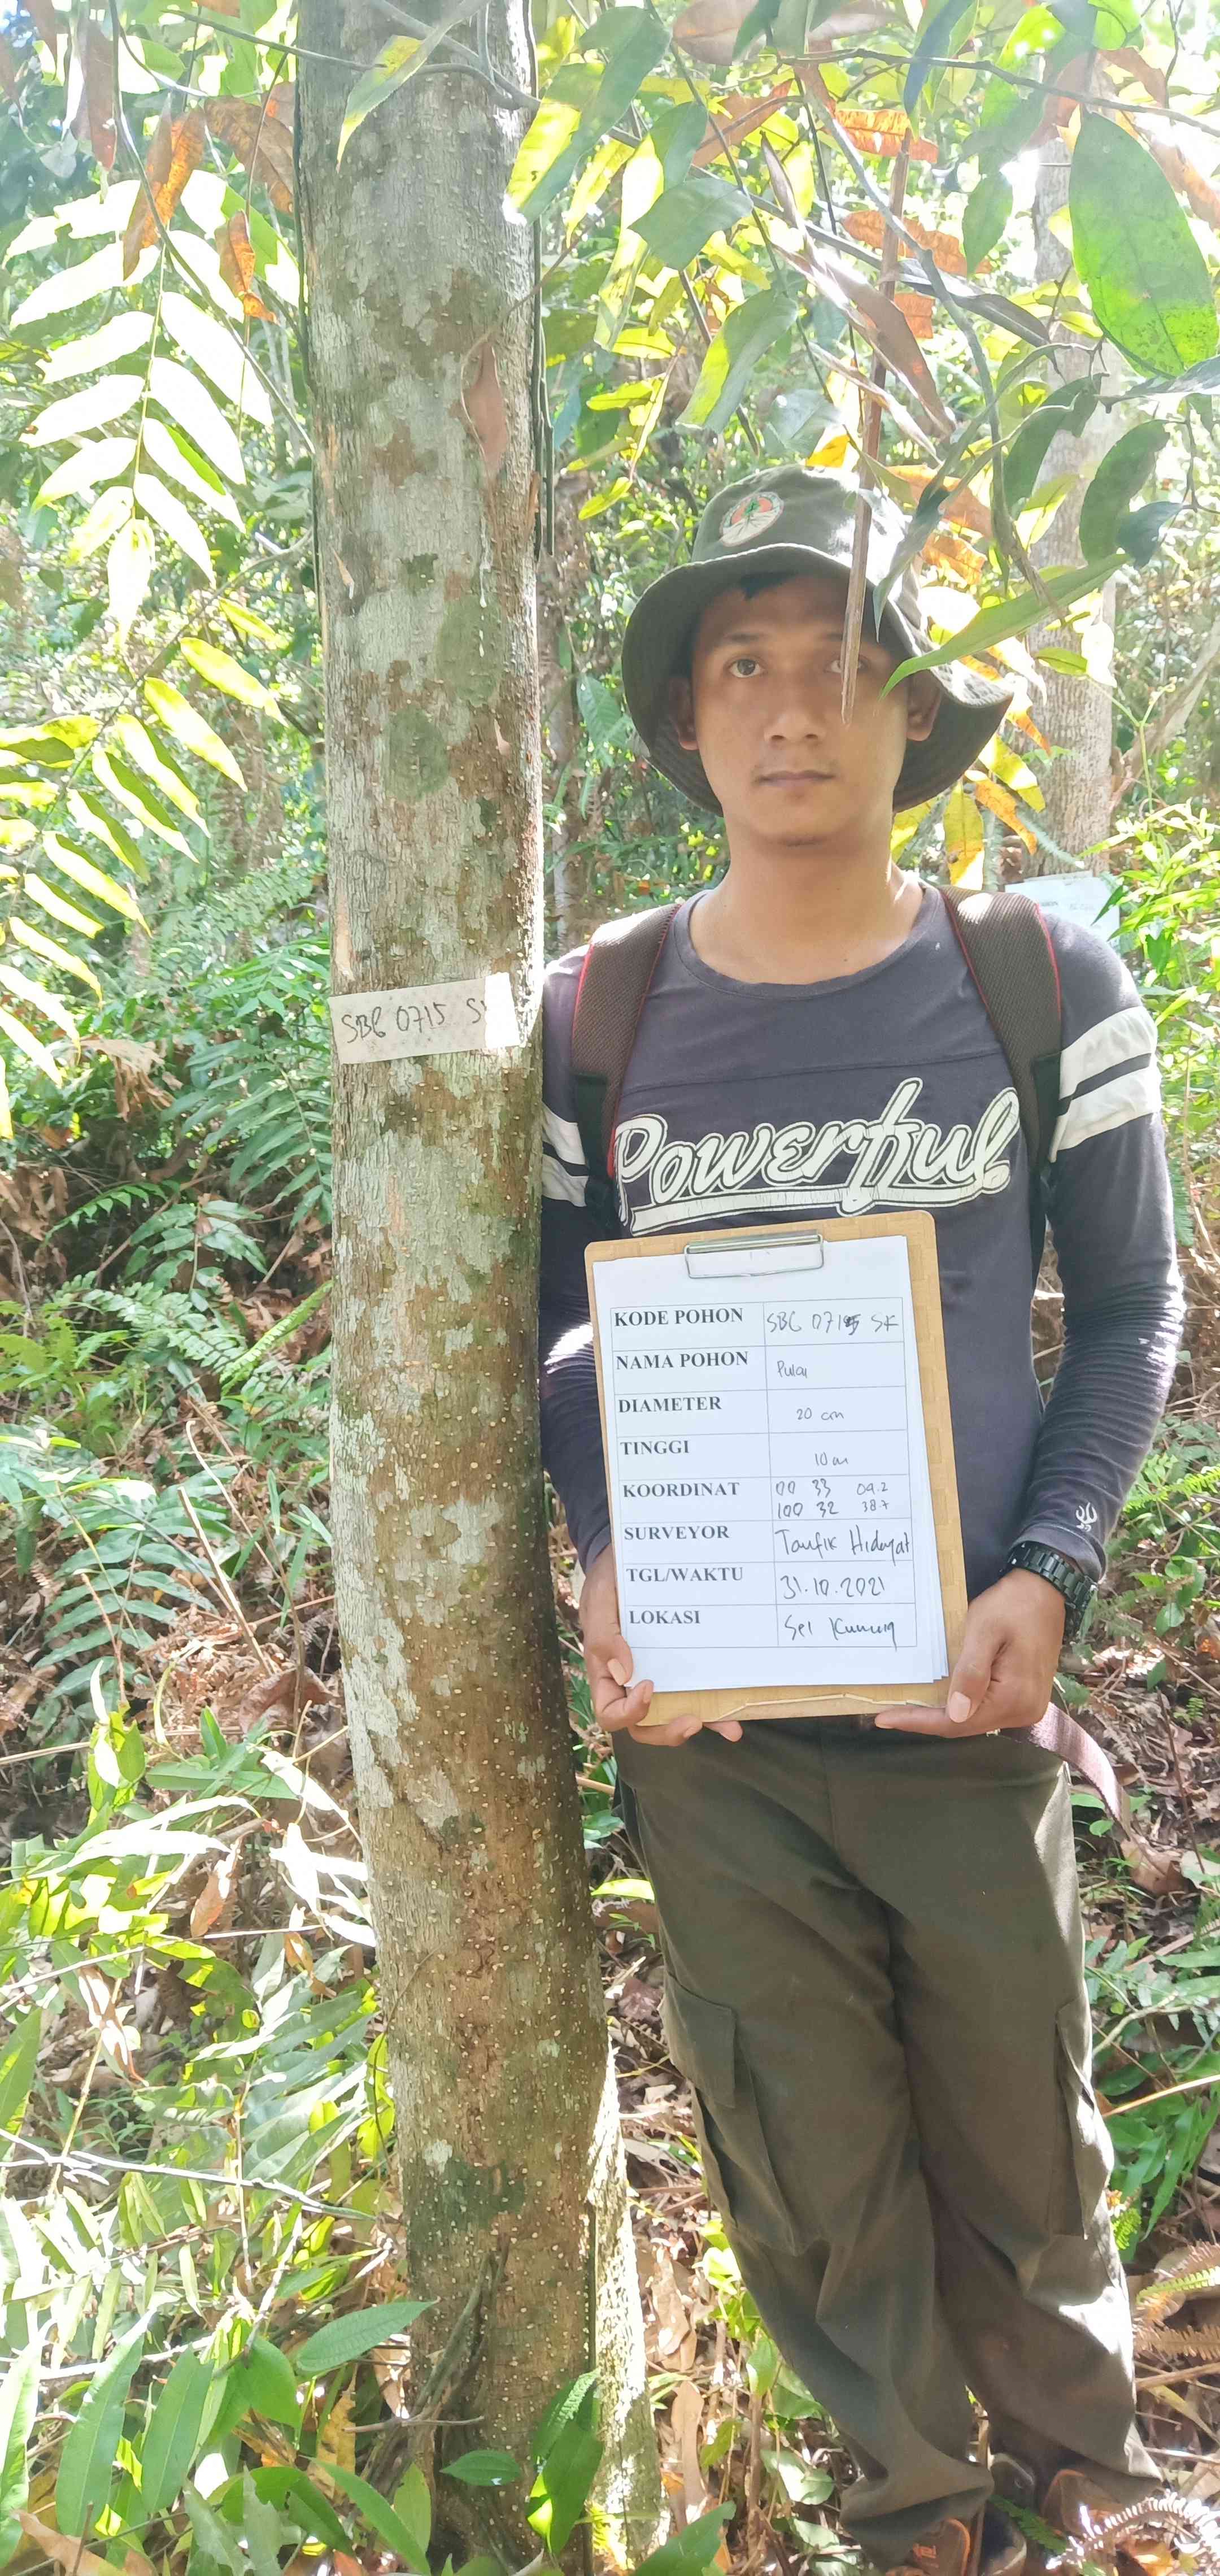 SBG 0715 SK
Powerful
KODE POHON SBG 0715 SK
NAMA POHON Pulai
DIAMETER 20 cm
TINGGI 10 m
KOORDINAT 00 33 09.2
100 32 38.7
SURVEYOR Taufik Hidayat
TGL/WAKTU 31.10.2021
LOKASI Sei Kuning